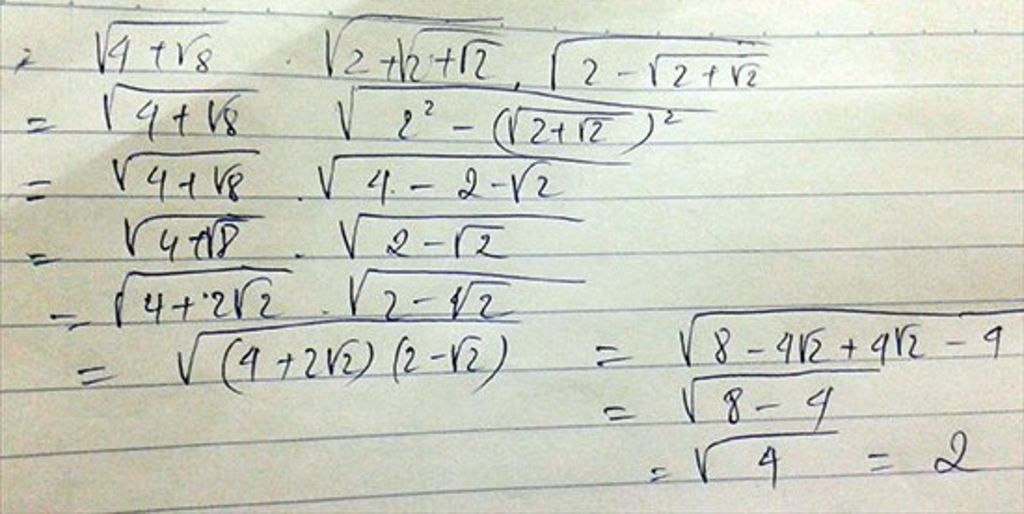 = √(4+√8) . √(2+√(2+√2)) . √(2-√(2+√2))
= √(4+√8) √(2² - (√(2+√2))²)
= √(4+√8) . √(4-2-√2)
= √(4+√8) . √(2-√2)
= √(4+2√2) . √(2-√2)
= √((4+2√2)(2-√2))
= √(8-4√2+4√2-4)
= √(8-4)
= √4 = 2